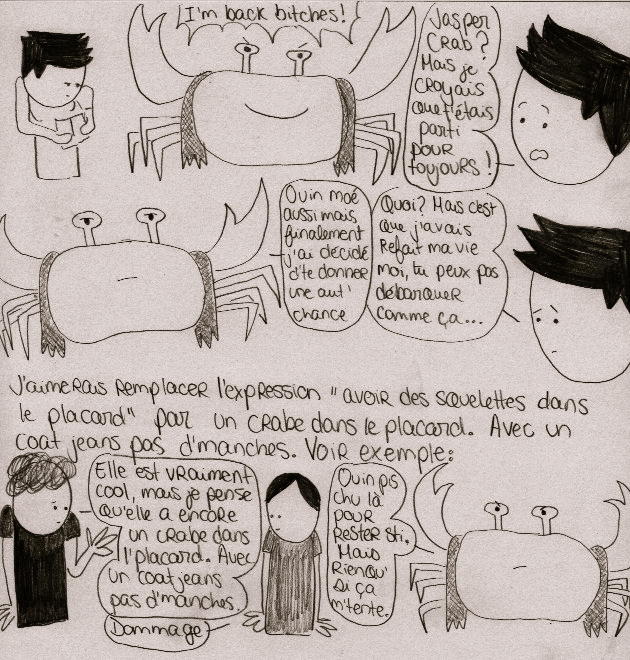 I'm back bitches!
Jasper
Crab?
Mais je
croyais
que t'étais
parti
pour
toujours!
Ouin moé
aussi mais
finalement
j'ai décidé
d'te donner
une aut'
chance
Quoi? Mais c'est
que j'avais
refait ma vie
moi, tu peux pas
débarquer
comme ça...
J'aimerais remplacer l'expression "avoir des squelettes dans
le placard" par un crabe dans le placard. Avec un
coat jeans pas d'manches. Voir exemple:
Elle est vraiment
cool, mais je pense
qu'elle a encore
un crabe dans
l'placard. Avec
un coat jeans
pas d'manches.
Dommage
Ouin pis
chu là
pour
rester sti.
Mais
rienqu'
si ça
m'tente.